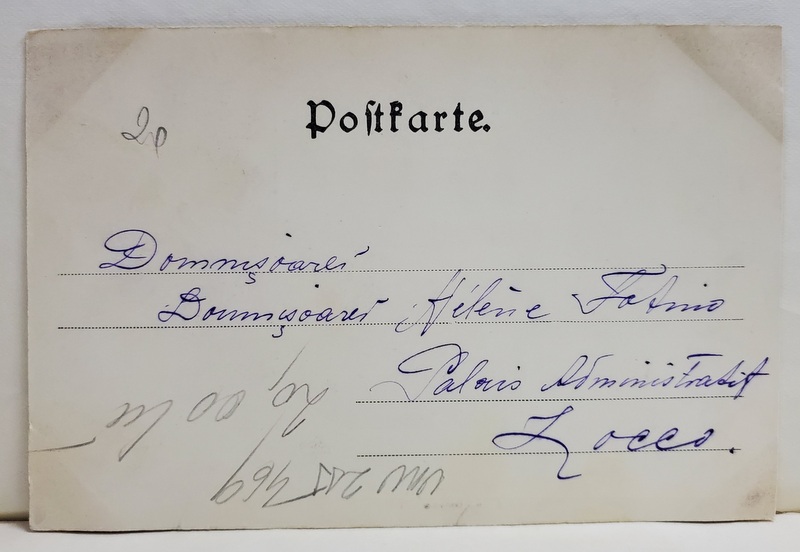 Postkarte.
20
Domnișoarei
Domnișoarei Hélène Fotino
Palais Administratif
Locco.
20,00 lei